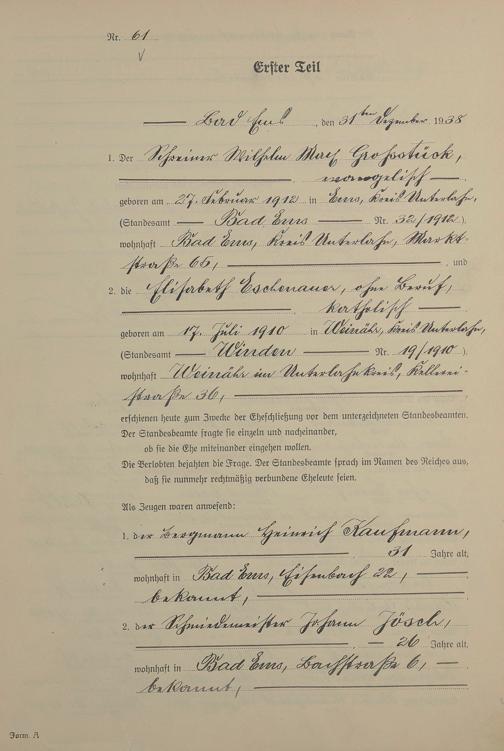 Nr. 61
Erster Teil
Bad Ems, den 31ten Dezember 1938
1. Der Schreiner Wilhelm Max Großstück,
evangelisch
geboren am 27. Februar 1912 in Ems, Kreis Unterlahn,
(Standesamt Bad Ems Nr. 32/1912),
wohnhaft Bad Ems, Kreis Unterlahn, Markt-
straße 65, und
2. die Elisabeth Eschenauer, ohne Beruf,
katholisch
geboren am 17. Juli 1910 in Weinähr, Kreis Unterlahn,
(Standesamt Winden Nr. 19/1910),
wohnhaft Weinähr im Unterlahnkreis, Kellerei-
straße 36,
erschienen heute zum Zwecke der Eheschließung vor dem unterzeichneten Standesbeamten.
Der Standesbeamte fragte sie einzeln und nacheinander,
ob sie die Ehe miteinander eingehen wollen.
Die Verlobten bejahten die Frage. Der Standesbeamte sprach im Namen des Reiches aus,
daß sie nunmehr rechtmäßig verbundene Eheleute seien.
Als Zeugen waren anwesend:
1. der Bergmann Heinrich Kaufmann,
51 Jahre alt,
wohnhaft in Bad Ems, Eisenbach 22,
bekannt,
2. der Schmiedemeister Johann Jösch,
26 Jahre alt,
wohnhaft in Bad Ems, Bachstraße 6,
bekannt,
Form. A